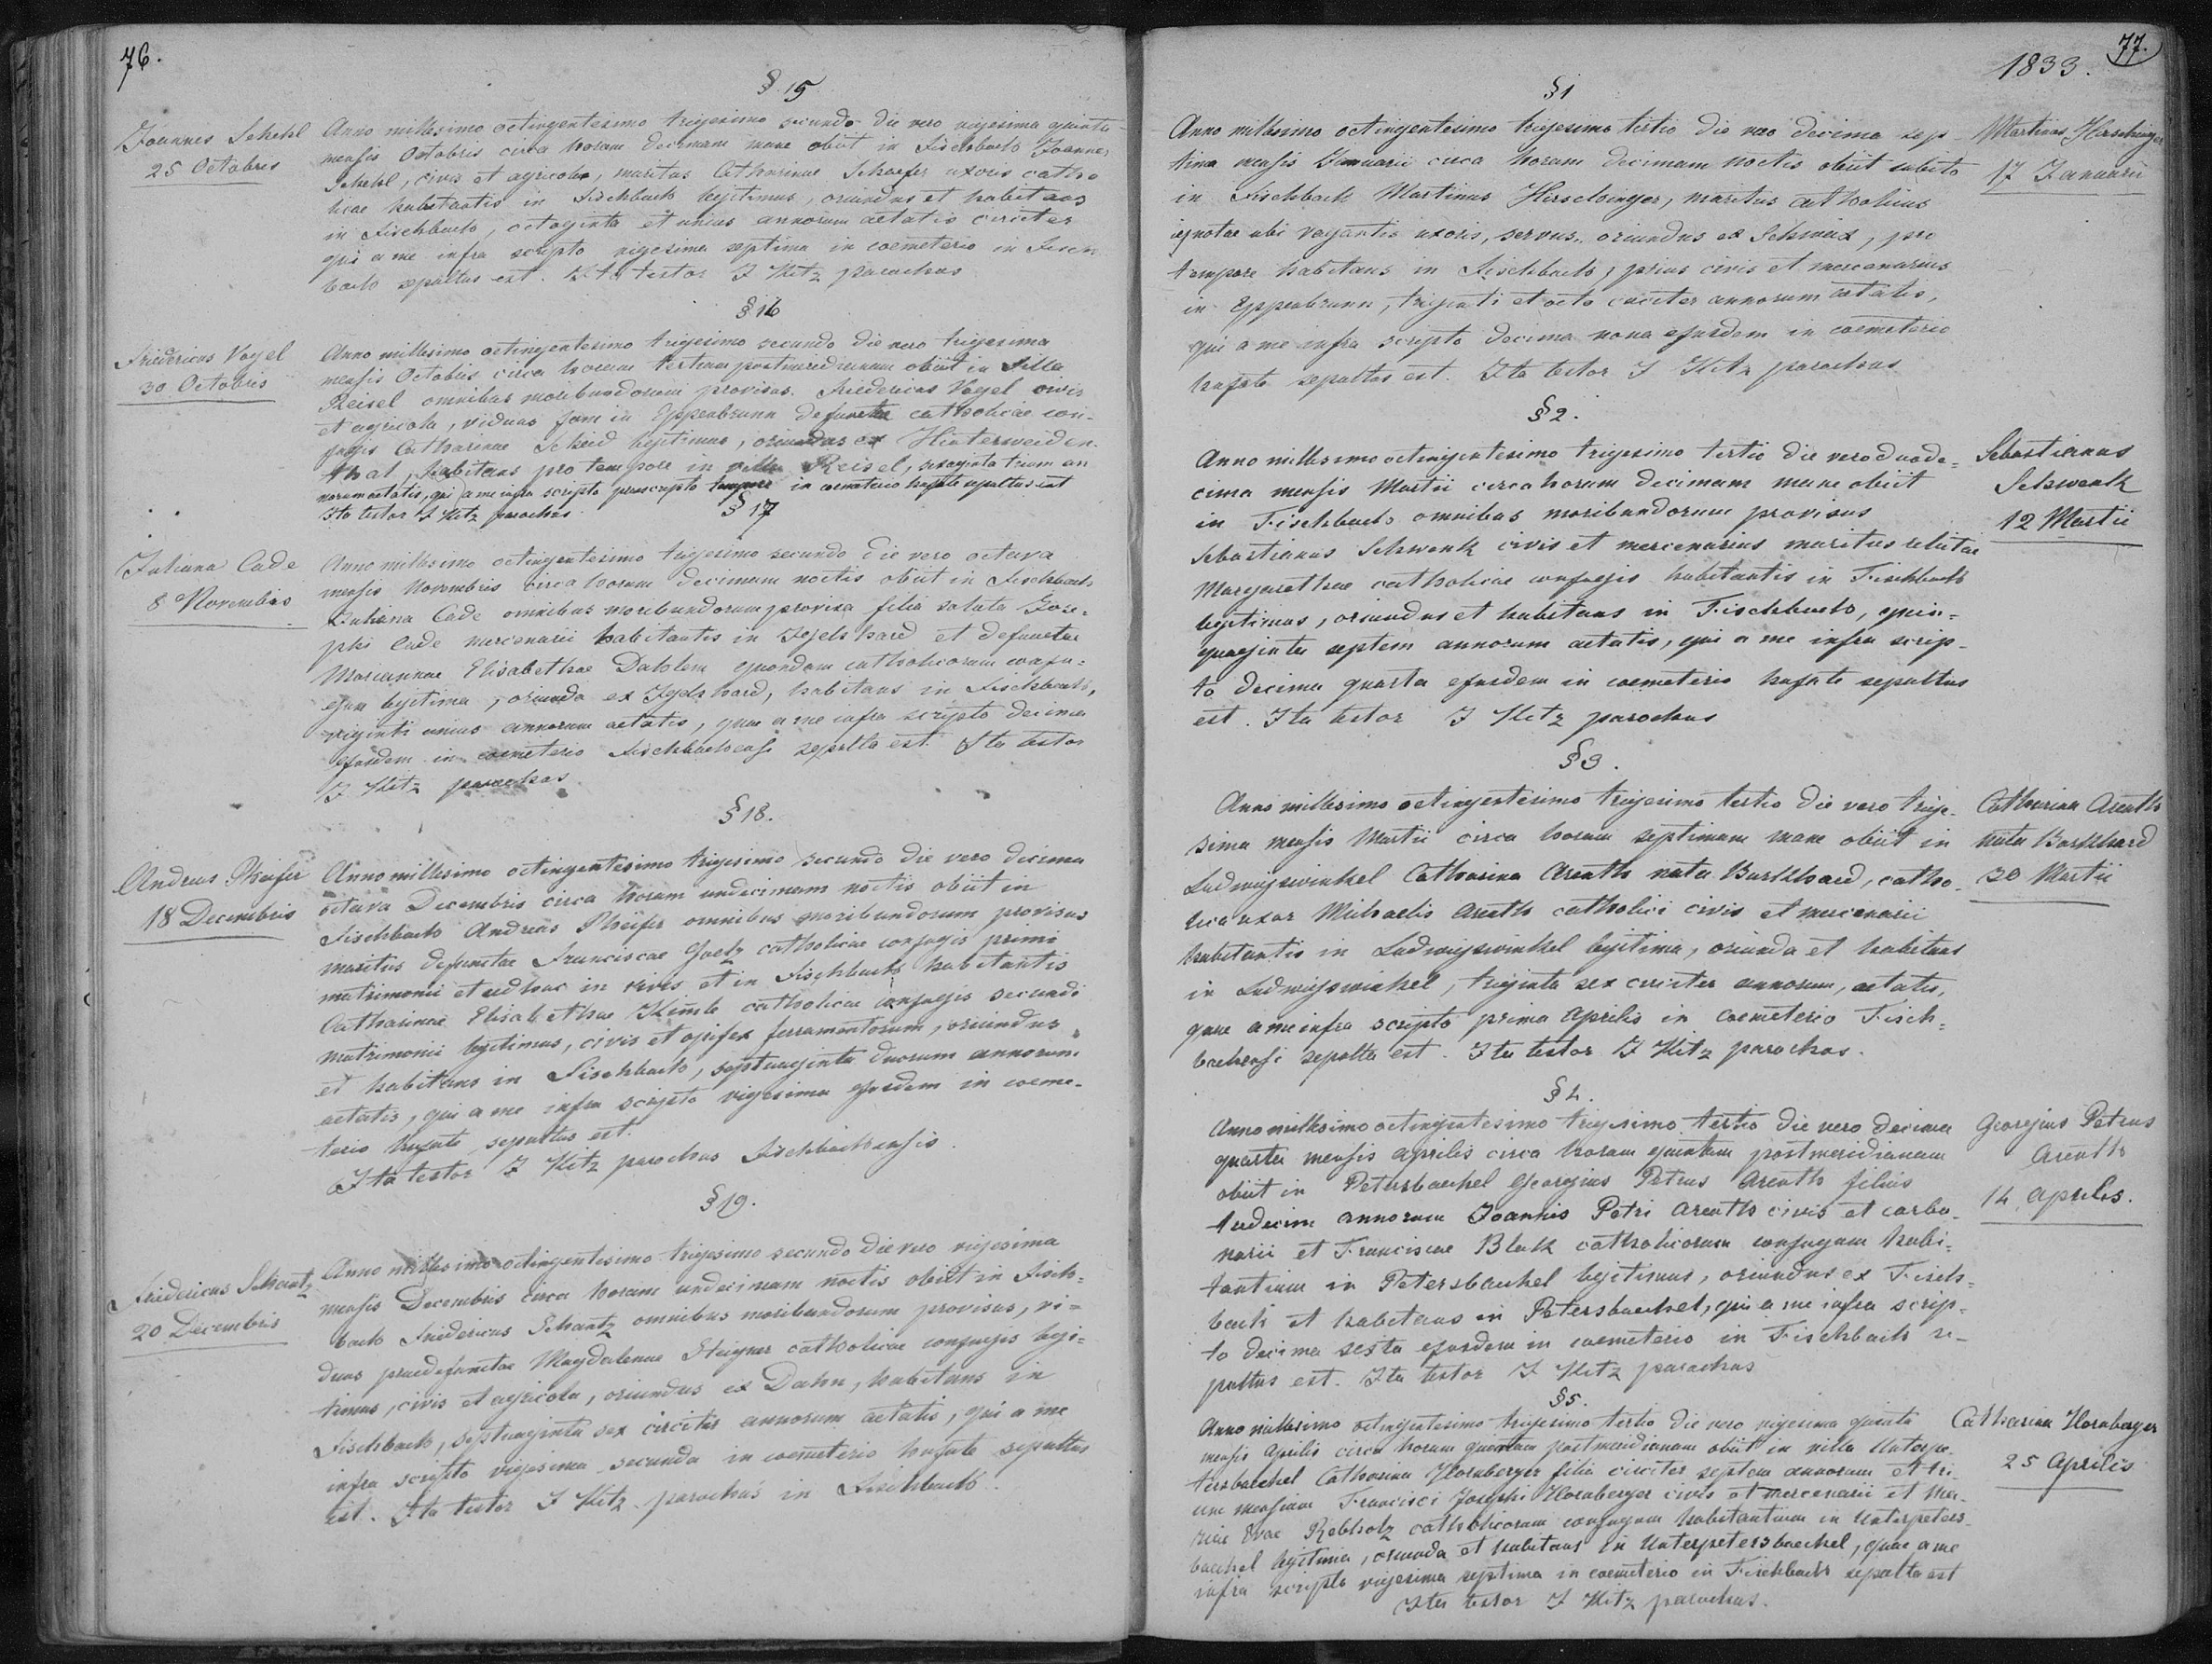 76.
§. 15
Joannes Schehl
25 Octobris
Anno millesimo octingentesimo trigesimo secundo die vero vigesima quinta
mensis Octobris circa horam decimam mane obiit in Fischbach Joannes
Schehl, civis et agricola, maritus Catharinae Schaefer uxoris catho
licae habitantis in Fischbach legitimus, oriundus et habitans
in Fischbach, octoginta et unius annorum aetatis circiter
qui a me infra scripto vigesima septima in coemeterio in Fisch
bach sepultus est. Ita testor J Kitz parochus
§ 16
Friedericus Vogel
30 Octobris
Anno millesimo octingentesimo trigesimo secundo die vero trigesima
mensis Octobris circa horam tertiam postmeridianam obiit in Villa
Reisel omnibus moribundorum provisus Friedericus Vogel civis
et agricola, viduus jam in Eppenbrunn defunctae catholicae con-
jugis Catharinae Scheid legitimus, oriundus ex Hinterweiden-
thal, habitans pro tempore in villa Reisel, sexaginta trium an
norum aetatis, qui a me infra scripto in coemeterio hujate sepultus est
Ita testor J Kitz parochus
§ 17
Juliana Cade
8 Novembris
Anno millesimo octingentesimo trigesimo secundo die vero octava
mensis Novembris circa horam decimam noctis obiit in Fischbach
Juliana Cade omnibus moribundorum provisa filia soluta Jose-
phi Cade mercenarii habitantis in Igelshard et defunctae
Mariannae Elisabethae Dahlem quondam catholicorum conju-
gum legitima, oriunda ex Igelshard, habitans in Fischbach,
viginti unius annorum aetatis, quae a me infra scripto decima
ejusdem in coemeterio Fischbachensi sepulta est. Ita testor
J. Kitz parochus
§ 18.
Andreas Pfeifer
18 Decembris
Anno millesimo octingentesimo trigesimo secundo die vero decima
octava Decembris circa horam undecimam noctis obiit in
Fischbach Andreas Pfeifer omnibus moribundorum provisus
maritus defunctae Franciscae Goetz catholicae conjugis primi
matrimonii et adhuc in vivis et in Fischbach habitantis
Catharinae Elisabethae Kimle catholicae conjugis secundi
matrimonii legitimus, civis et opifex ferramentorum, oriundus
et habitans in Fischbach, septuaginta duorum annorum
aetatis, qui a me infra scripto vigesima ejusdem in coeme-
terio hujate sepultus est.
Ita testor J Kitz parochus Fischbachensis
§ 19.
Friedericus Schantz
20 Decembris
Anno millesimo octingentesimo trigesimo secundo die vero vigesima
mensis Decembris circa horam undecimam noctis obiit in Fisch-
bach Friedericus Schantz omnibus moribundorum provisus, vi-
duus praedefunctae Magdalenae Steigner catholicae conjugis legi-
timus, civis et agricola, oriundus ex Dahn, habitans in
Fischbach, septuaginta sex circiter annorum aetatis, qui a me
infra scripto vigesima secunda in coemeterio hujate sepultus
est. Ita testor J Kitz parochus in Fischbach.
77.
1833.
§ 1
Martinus Hirschinger
17 Januarii
Anno millesimo octingentesimo trigesimo tertio die vero decima sep-
tima mensis Januarii circa horam decimam noctis obiit subito
in Fischbach Martinus Hirschinger, maritus catholicus
ignotae ubi vagantis uxoris, servus, oriundus ex Schweix, pro
tempore habitans in Fischbach, prius civis et mercenarius
in Eppenbrunn, triginti et octo circiter annorum aetatis,
qui a me infra scripto decima nona ejusdem in coemeterio
hujate sepultus est. Ita testor J Kitz parochus
§ 2.
Sebastianus
Schwenk
12 Martii
Anno millesimo octingentesimo trigesimo tertio die vero duode-
cima mensis Martii circa horam decimam mane obiit
in Fischbach omnibus moribundorum provisus
Sebastianus Schwenk civis et mercenarius maritus relictae
Margarethae catholicae conjugis habitantis in Fischbach
legitimus, oriundus et habitans in Fischbach, quin-
quaginta septem annorum aetatis, qui a me infra scrip-
to decima quarta ejusdem in coemeterio hujate sepultus
est. Ita testor J Kitz parochus
§ 3.
Catharina Arenth
nata Burkhard
30 Martii
Anno millesimo octingentesimo trigesimo tertio die vero trige-
sima mensis Martii circa horam septimam mane obiit in
Ludwigswinkel Catharina Arenth nata Burkhard, catho-
lica uxor Michaelis Arenth catholici civis et mercenarii
habitantis in Ludwigswinkel legitima, oriunda et habitans
in Ludwigswinkel, triginta sex circiter annorum, aetatis,
quae a me infra scripto prima Aprilis in coemeterio Fisch-
bachensi sepulta est. Ita testor J Kitz parochus.
§ 4.
Georgius Petrus
Arenth
14 Aprilis.
Anno millesimo octingentesimo trigesimo tertio die vero decima
quarta mensis Aprilis circa horam quintam postmeridianam
obiit in Petersbaechel Georgius Petrus Arenth filius
tredecim annorum Joannis Petri Arenth civis et carbo-
narii et Franciscae Blak catholicorum conjugum habi-
tantium in Petersbaechel legitimus, oriundus ex Fisch-
bach et habitans in Petersbaechel, qui a me infra scrip-
to decima sexta ejusdem in coemeterio in Fischbach se-
pultus est. Ita testor J Kitz parochus
§ 5.
Catharina Hornberger
25 Aprilis
Anno millesimo octingentesimo trigesimo tertio die vero vigesima quinta
mensis Aprilis circa horam quintam postmeridianam obiit in villa Unterpe-
tersbaechel Catharina Hornberger filia circiter septem annorum et tri-
um mensium Francisci Josephi Hornberger civis et mercenarii et Ma-
riae Evae Rebholz catholicorum conjugum habitantium in Unterpeters-
baechel legitima, oriunda et habitans in Unterpetersbaechel, quae a me
infra scripto vigesima septima in coemeterio in Fischbach sepulta est
Ita testor J Kitz parochus.